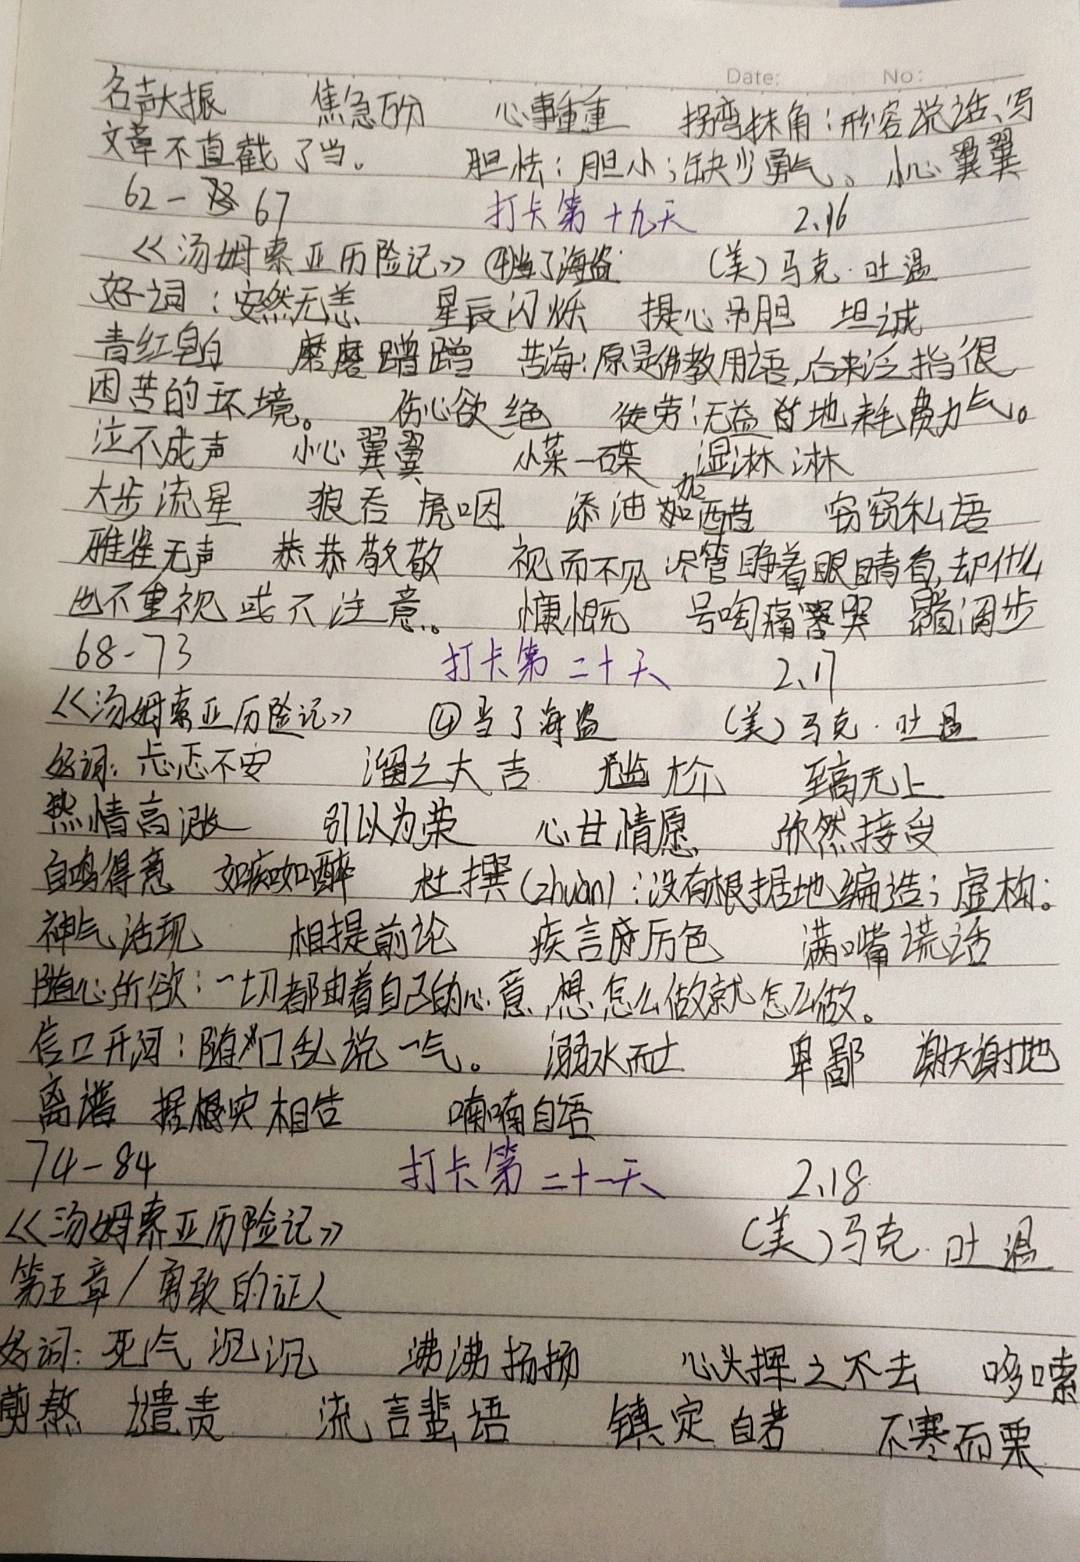 Date: No:
名声大振 焦急万分 心事重重 拐弯抹角:形容说话、写
文章不直截了当。 胆怯:胆小;缺少勇气。 小心翼翼
62-67 打卡第十九天 2.16
《汤姆索亚历险记》④当了海盗 (美)马克·吐温
好词:安然无恙 星辰闪烁 提心吊胆 坦诚
青红皂白 磨磨蹭蹭 苦海:原是佛教用语,后来泛指很
困苦的环境。 伤心欲绝 徒劳:无益的地耗费力气。
泣不成声 小心翼翼 小菜一碟 湿淋淋
大步流星 狼吞虎咽 添油加醋 窃窃私语
雅雀无声 恭恭敬敬 视而不见 尽管睁着眼睛看,却什么
也不重视或不注意。 慷慨 号啕痛哭 昂首阔步
68-73 打卡第二十天 2.17
《汤姆索亚历险记》 ④当了海盗 (美)马克·吐温
好词:忐忑不安 溜之大吉 尴尬 至高无上
热情高涨 引以为荣 心甘情愿 欣然接受
自鸣得意 如痴如醉 杜撰(zhuàn):没有根据地编造;虚构:
神气活现 相提前论 疾言厉色 满嘴谎话
随心所欲:一切都由着自己的心意,想怎么做就怎么做。
信口开河:随口乱说一气。 溺水而亡 卑鄙 谢天谢地
离谱 据实相告 喃喃自语
74-84 打卡第二十一天 2.18
《汤姆索亚历险记》 (美)马克·吐温
第五章/勇敢的证人
好词:死气沉沉 沸沸扬扬 心头挥之不去 哆嗦
煎熬 谴责 流言蜚语 镇定自若 不寒而栗